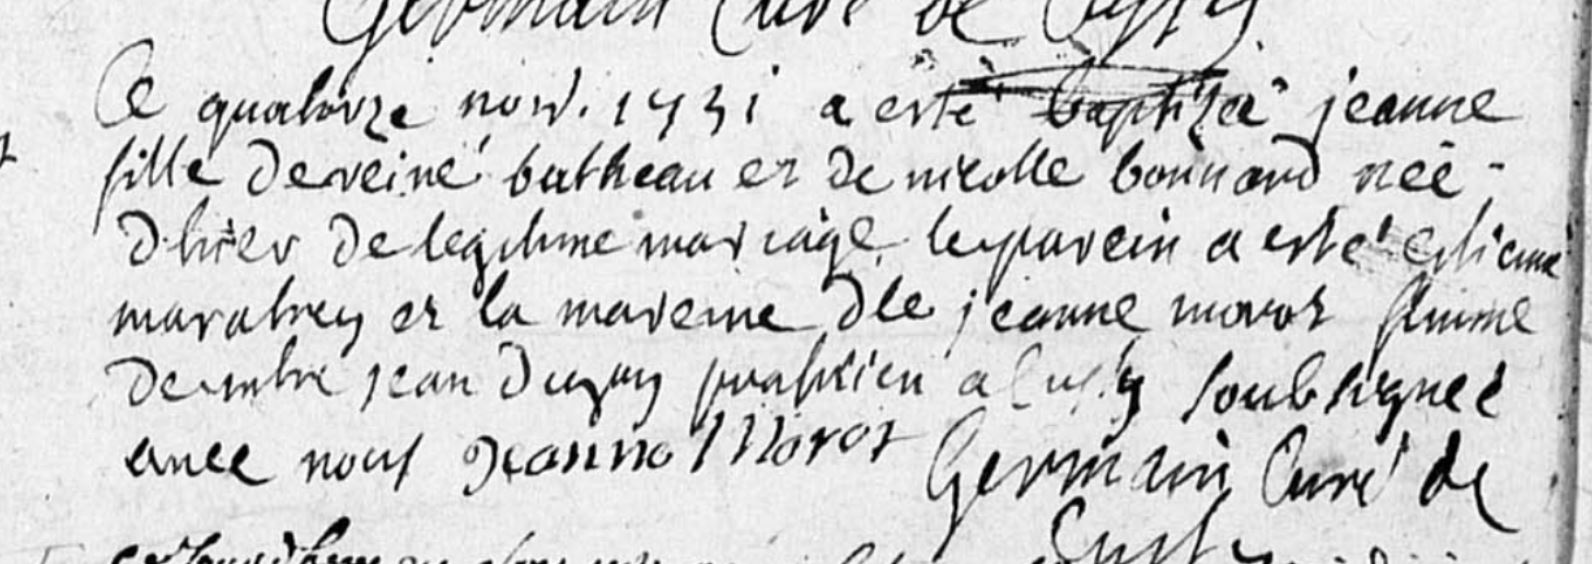 Germain Curé de
Ce quatorze nov. 1731 a esté baptizée jeanne
fille de reiné butheau et de nicolle bonnard née
d'hier de legitime mariage. le parein a esté estienne
et la mareine dlle jeanne morot femme
de mtre jean praticien a soubsignée
avec nous Jeanne Morot Germain Curé de